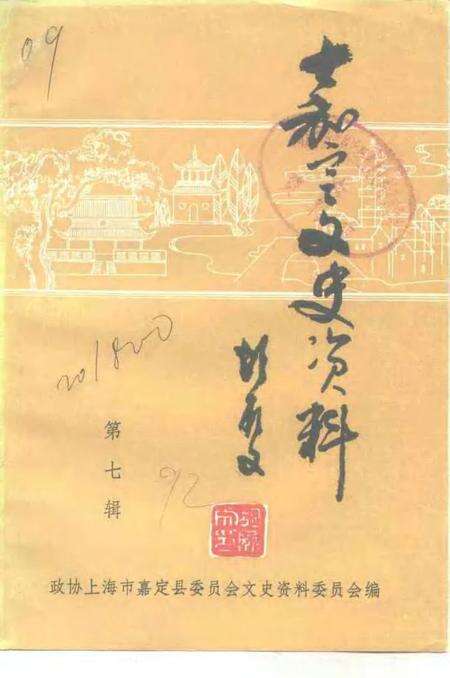 09
嘉定文史资料
胡厥文
201800
第七辑
92
政协上海市嘉定县委员会文史资料委员会编